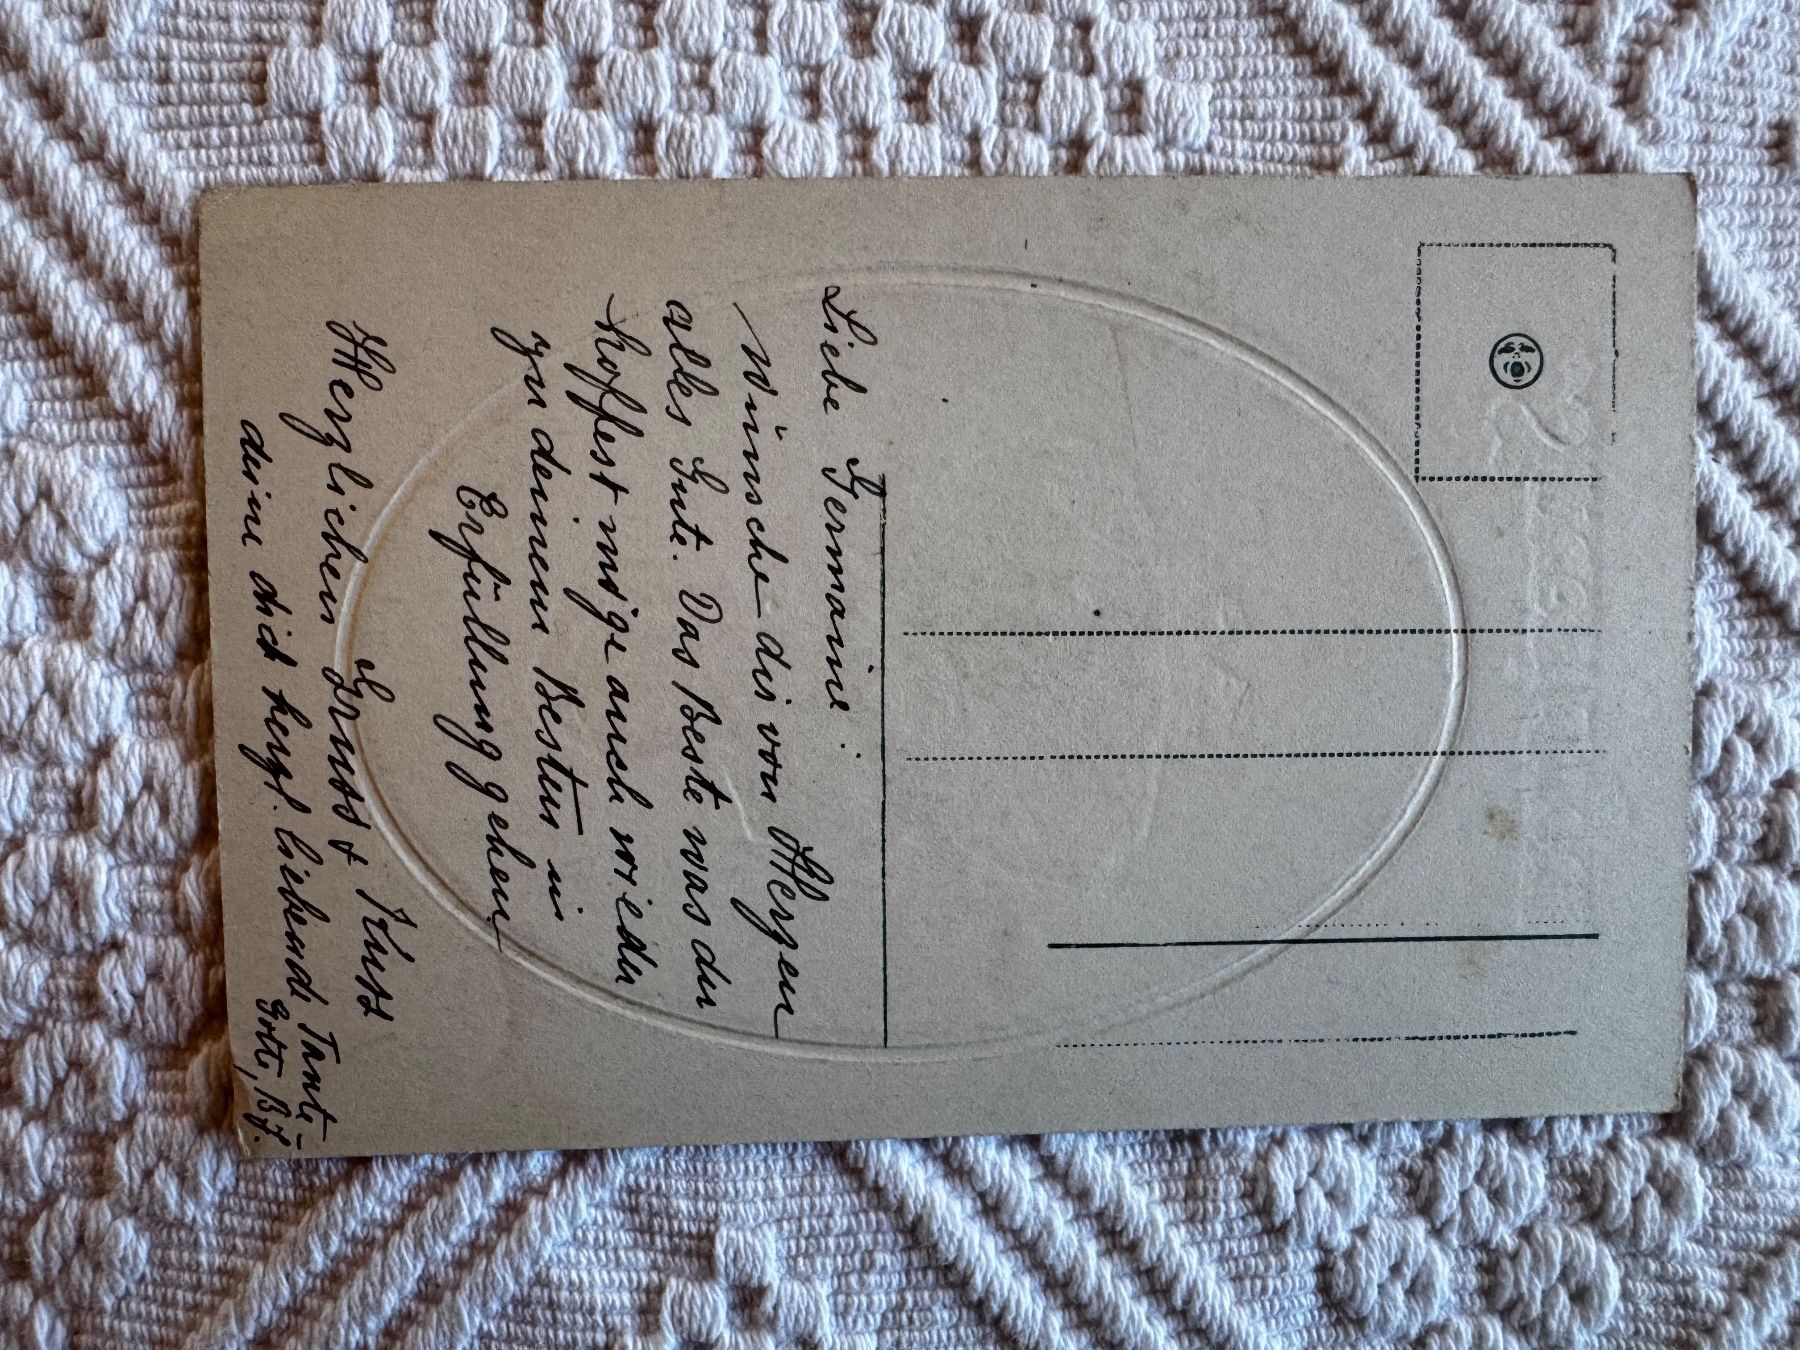 Liebe Germaine.
Wünsche dir von Herzen
alles Gute. Das Beste was du
hoffest möge auch wieder
zu deinem Besten in
Erfüllung gehen
Herzlichen Gruss & Kuss
deine dich herzl. liebende Tante-
Gotte,